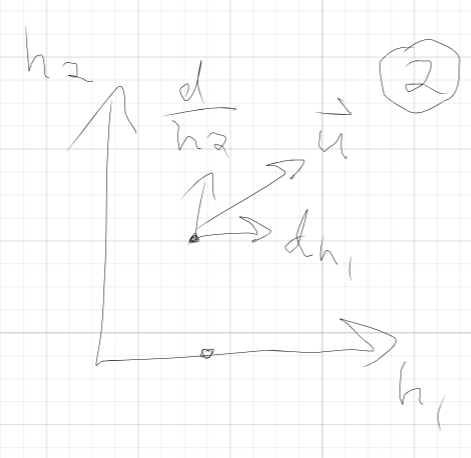 h2
2
d
h2
u
dh1
h1